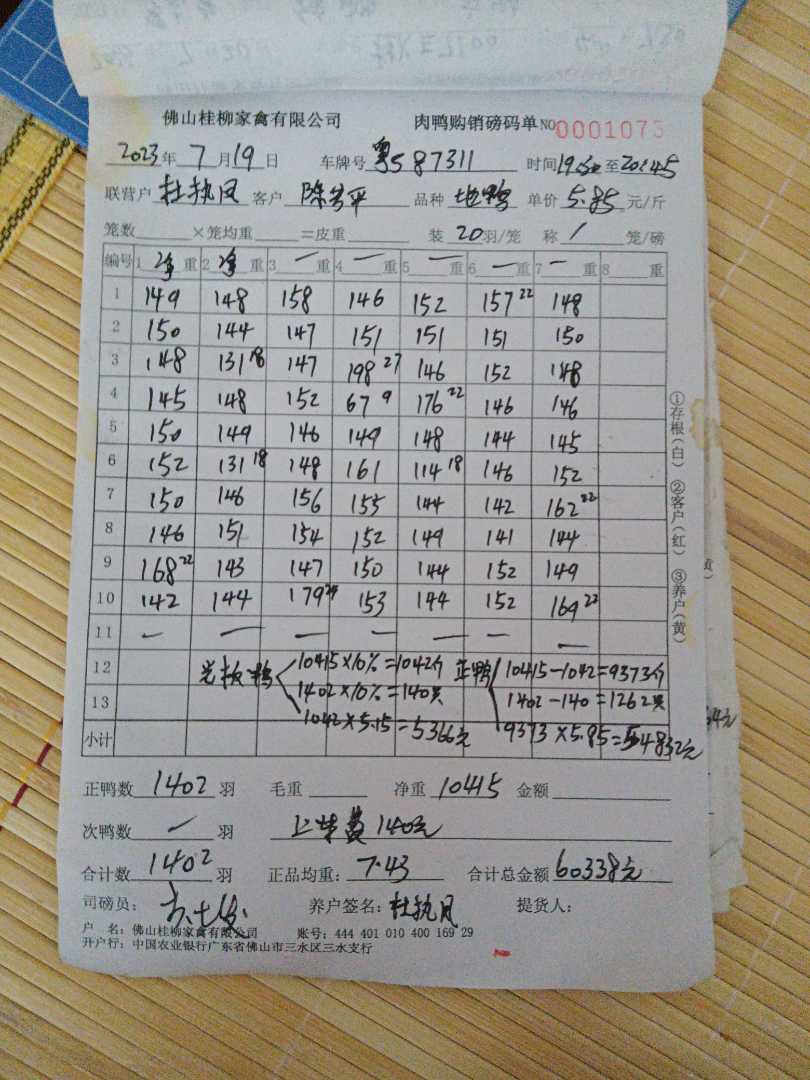 佛山桂柳家禽有限公司 肉鸭购销磅码单 NO 0001075
2023年 7月19日 车牌号 粤587311 时间19:30至20:45
联营户 杜执凤 客户 陈 平 品种 地鸭 单价 5.85 元/斤
笼数 ×笼均重 =皮重 装 20羽/笼 称 / 笼/磅
编号 1 净重 2 净重 3 一重 4 一重 5 一重 6 一重 7 一重 8 重
1 149 148 158 146 152 157 22 148
2 150 144 147 151 151 151 150
3 148 131 18 147 198 27 146 152 148
4 145 148 152 67 9 176 22 146 146
5 150 149 146 149 148 144 145
6 152 131 18 148 161 114 18 146 152
7 150 146 156 155 144 142 162 22
8 146 151 154 152 149 141 144
9 168 22 143 147 150 144 152 149
10 142 144 179 24 153 144 152 169 23
11 — — — — — — —
12 光板鸭 10415×10%=1042斤 正鸭 10415-1042=9373斤
13 1402×10%=140只 1402-140=1262只
小计 1042×5.15=5366元 9373×5.85=54832元
正鸭数 1402 羽 毛重 净重 10415 金额
次鸭数 — 羽 上车费140元
合计数 1402 羽 正品均重: 7.43 合计总金额 60338元
司磅员: 养户签名: 杜执凤 提货人:
户 名: 佛山桂柳家禽有限公司 账号: 444 401 010 400 169 29
开户行: 中国农业银行广东省佛山市三水区三水支行
①存根(白) ②客户(红) ③养户(黄)